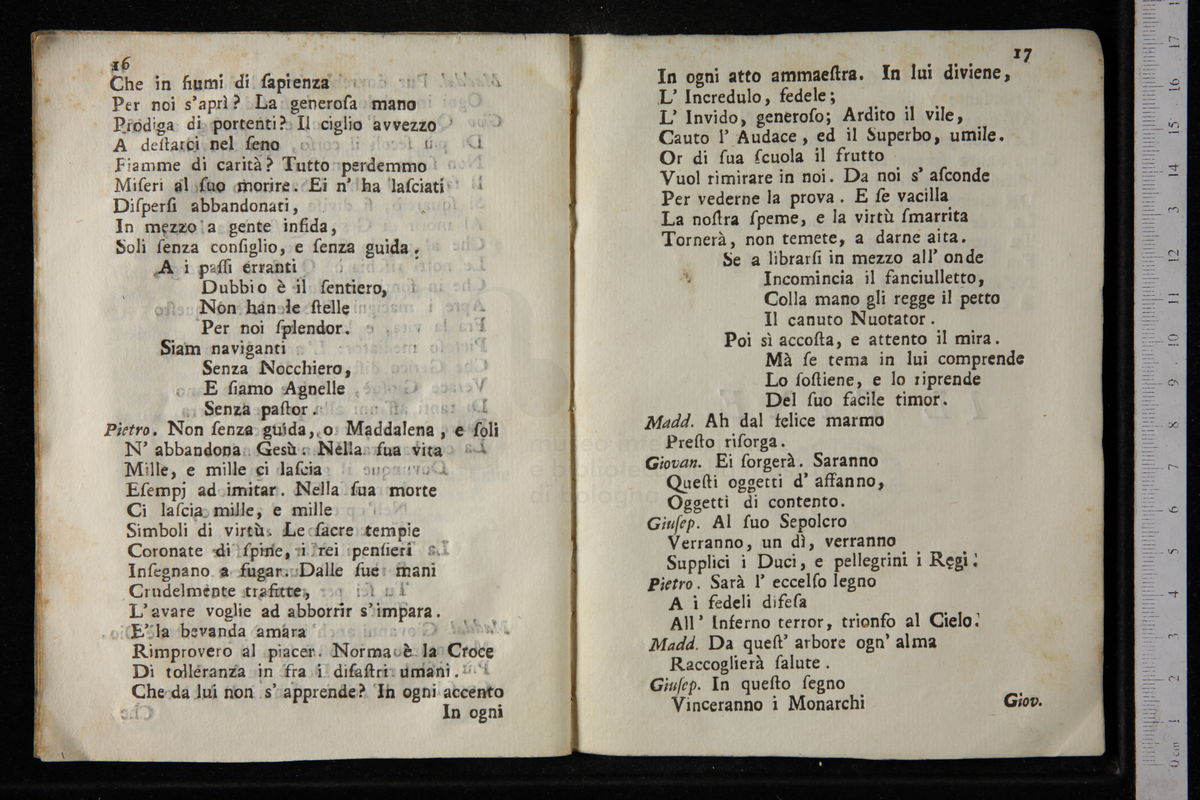 16
Che in fiumi di ſapienza
Per noi s'aprì? La generoſa mano
Prodiga di portenti? Il ciglio avvezzo
A deſtarci nel ſeno
Fiamme di carità? Tutto perdemmo
Miſeri al ſuo morire. Ei n' ha laſciati
Diſperſi abbandonati,
In mezzo a gente infida,
Soli ſenza conſiglio, e ſenza guida.
A i paſſi erranti
Dubbio è il ſentiero,
Non han le ſtelle
Per noi ſplendor.
Siam naviganti
Senza Nocchiero,
E ſiamo Agnelle
Senza paſtor.
Pietro. Non ſenza guida, o Maddalena, e ſoli
N' abbandona Gesù. Nella ſua vita
Mille, e mille ci laſcia
Eſempj ad imitar. Nella ſua morte
Ci laſcia mille, e mille
Simboli di virtù. Le ſacre tempie
Coronate di ſpine, i rei penſieri
Inſegnano a fugar. Dalle ſue mani
Crudelmente trafitte,
L'avare voglie ad abborrir s'impara.
E' la bevanda amara
Rimprovero al piacer. Norma è la Croce
Di tolleranza in fra i diſaſtri umani.
Che da lui non s' apprende? In ogni accento
In ogni
17
In ogni atto ammaeſtra. In lui diviene,
L' Incredulo, fedele;
L' Invido, generoſo; Ardito il vile,
Cauto l' Audace, ed il Superbo, umile.
Or di ſua ſcuola il frutto
Vuol rimirare in noi. Da noi s' aſconde
Per vederne la prova. E ſe vacilla
La noſtra ſpeme, e la virtù ſmarrita
Tornerà, non temete, a darne aita.
Se a librarſi in mezzo all' onde
Incomincia il fanciulletto,
Colla mano gli regge il petto
Il canuto Nuotator.
Poi sì accoſta, e attento il mira.
Mà ſe tema in lui comprende
Lo ſoſtiene, e lo riprende
Del ſuo facile timor.
Madd. Ah dal felice marmo
Preſto riſorga.
Giovan. Ei ſorgerà. Saranno
Queſti oggetti d' affanno,
Oggetti di contento.
Giuſep. Al ſuo Sepolcro
Verranno, un dì, verranno
Supplici i Duci, e pellegrini i Regi.
Pietro. Sarà l' eccelſo legno
A i fedeli difeſa
All' Inferno terror, trionfo al Cielo.
Madd. Da queſt' arbore ogn' alma
Raccoglierà ſalute.
Giuſep. In queſto ſegno
Vinceranno i Monarchi
Giov.